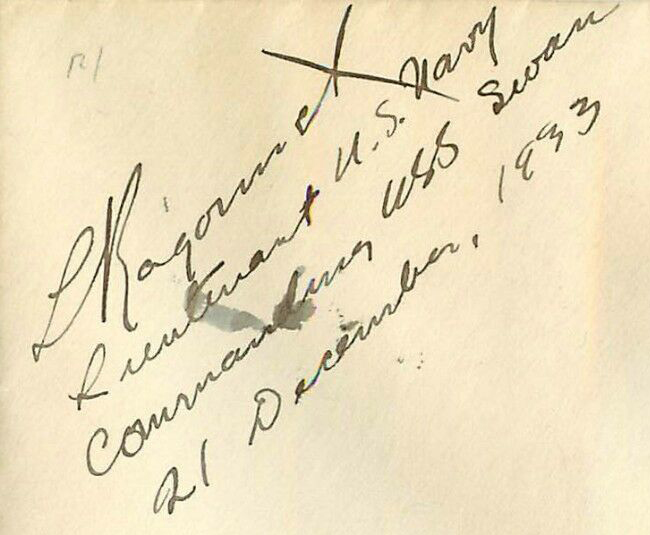 R1
L
Lieutenant U.S. Navy
Commanding USS Swan
21 December, 1933